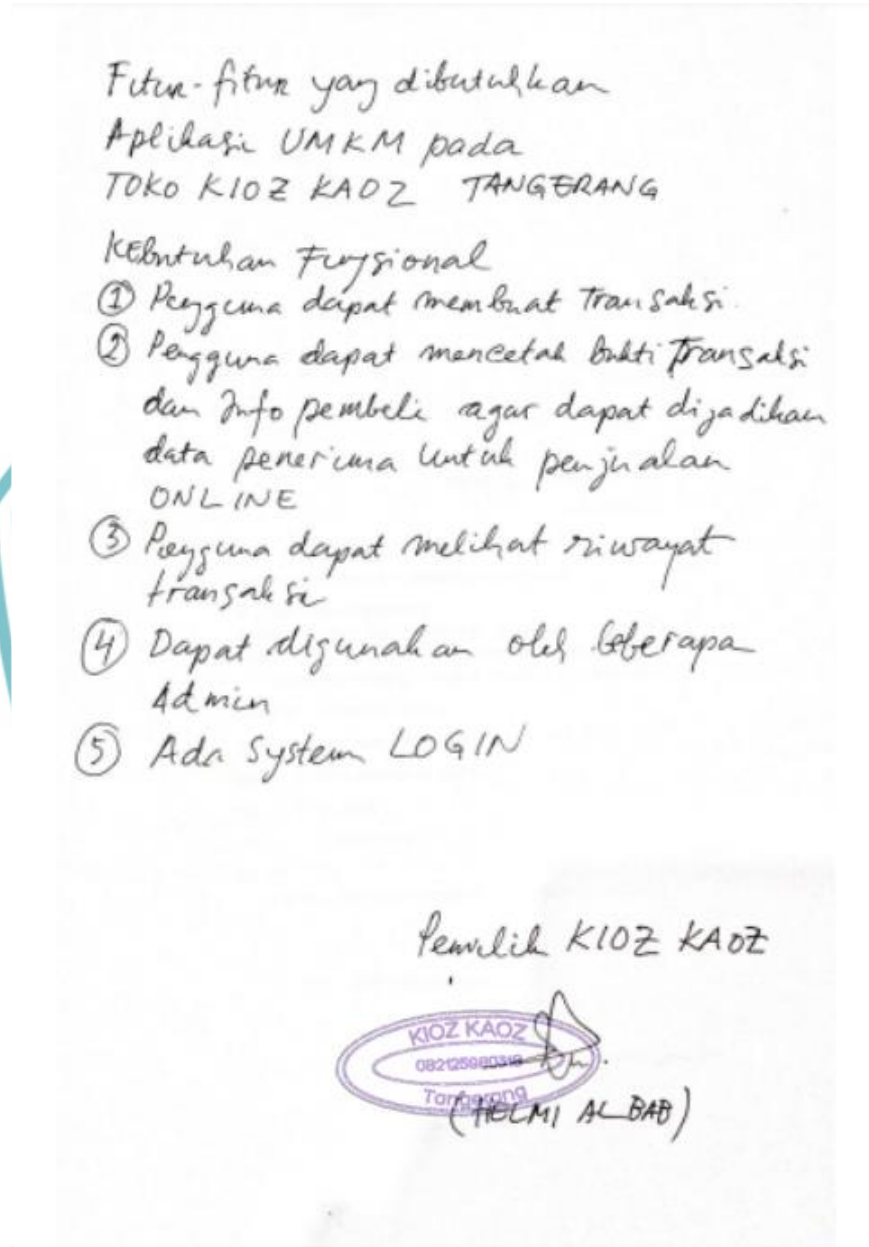 Fitur-fitur yang dibutuhkan
Aplikasi UMKM pada
TOKO KIOZ KAOZ TANGERANG
KEbutuhan Fungsional
① Pengguna dapat membuat Transaksi.
② Pengguna dapat mencetak bukti Transaksi
dan Info pembeli agar dapat dijadikan
data penerima untuk penjualan
ONLINE
③ Pengguna dapat melihat riwayat
transaksi
④ Dapat digunakan oleh beberapa
Admin
⑤ Ada System LOGIN
Pemilik KIOZ KAOZ
KIOZ KAOZ
Tangerang
(HELMI AL BAB)